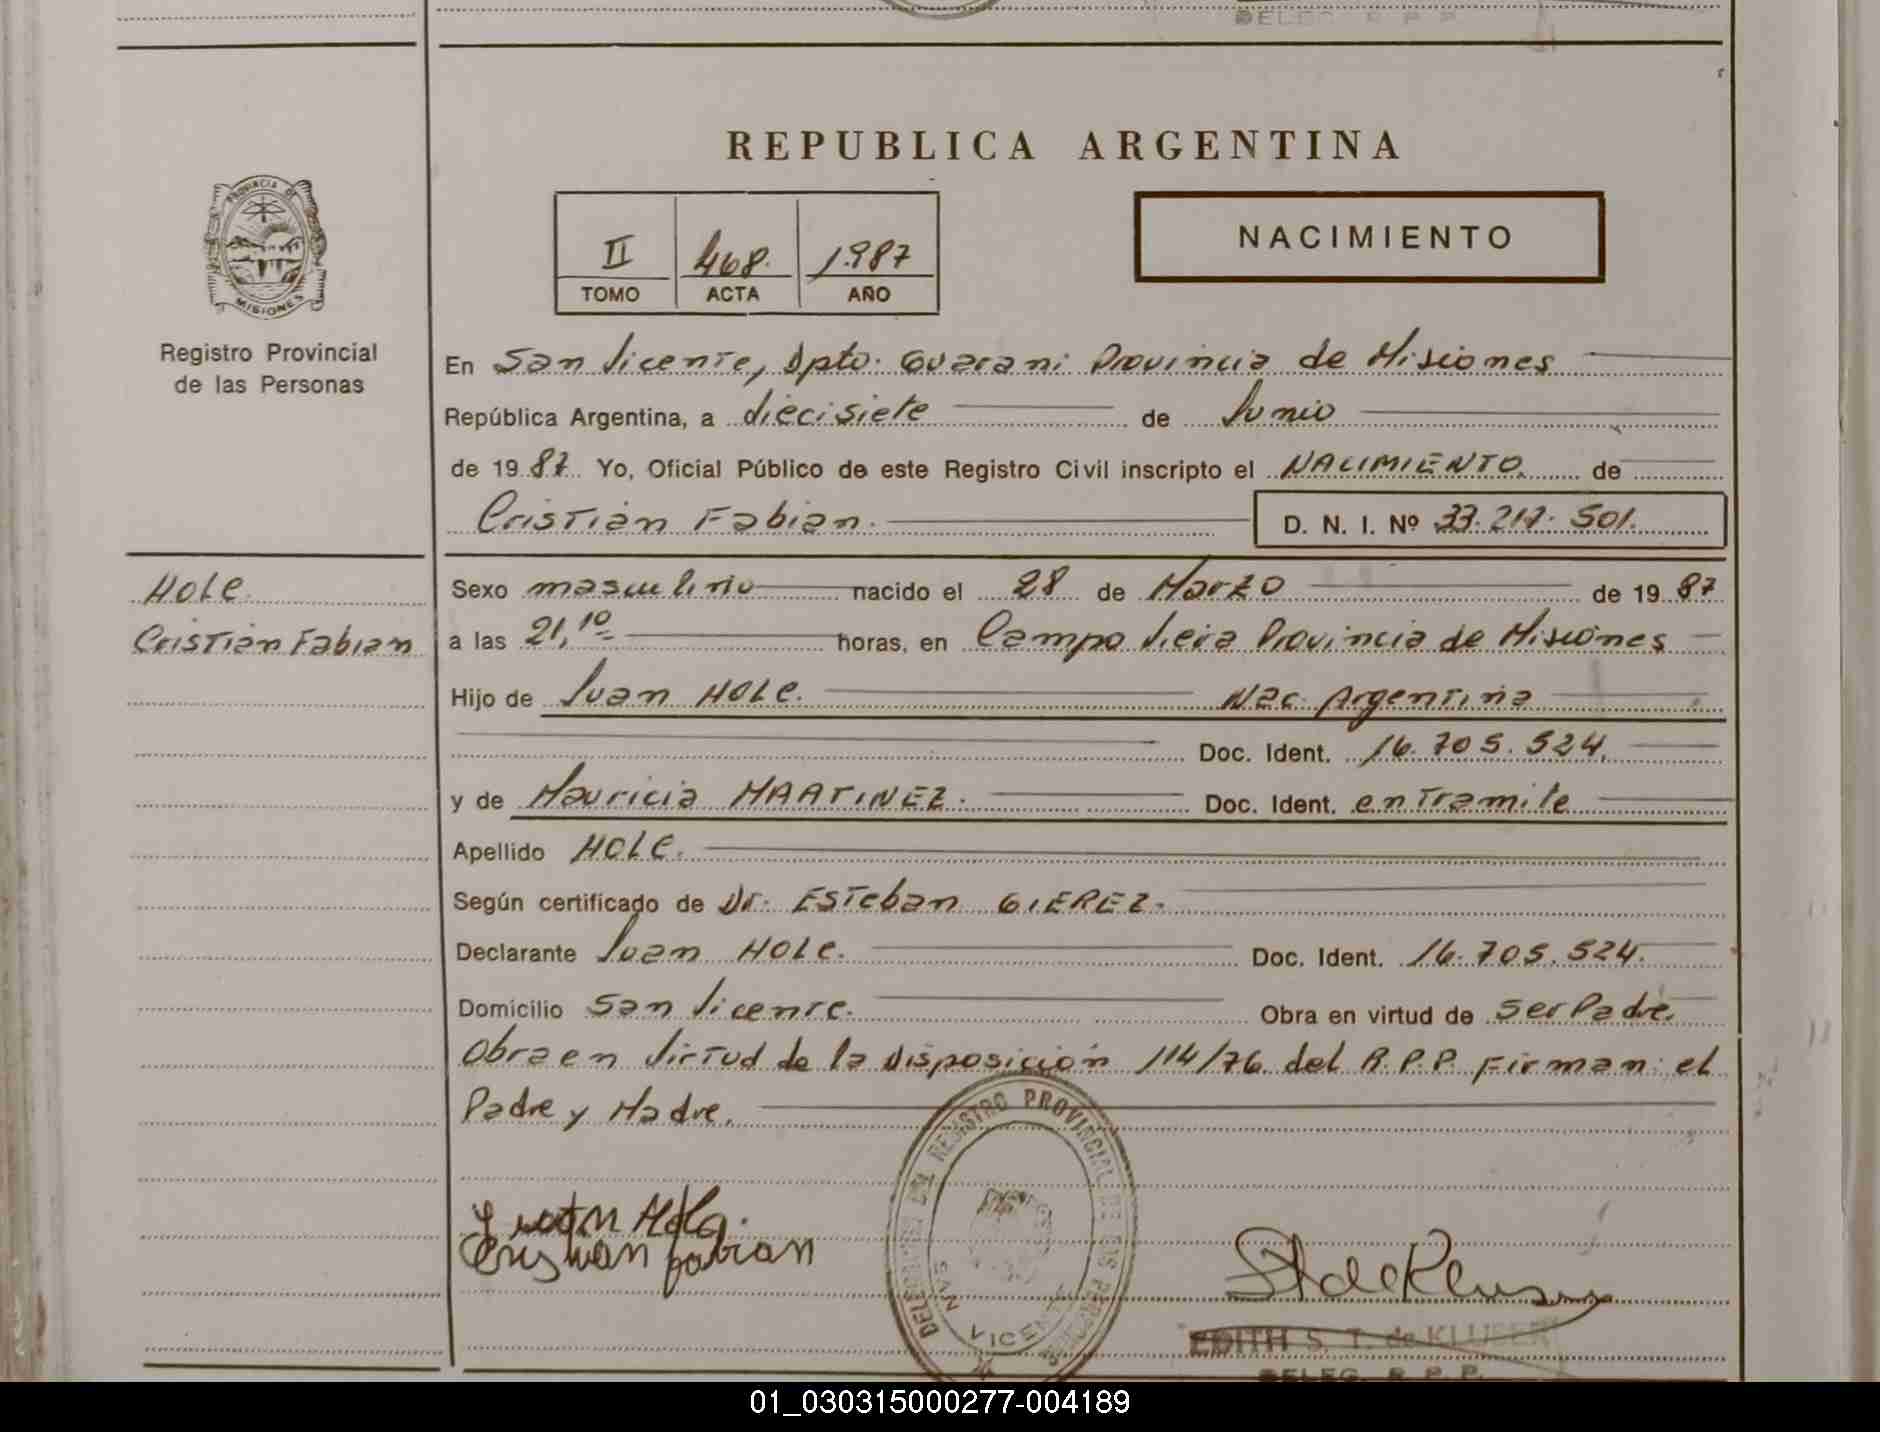 DELEG. R. P. P.
REPUBLICA ARGENTINA
PROVINCIA DE
MISIONES
II 468. 1.987
TOMO ACTA AÑO
NACIMIENTO
Registro Provincial
de las Personas
En San Vicente, Dpto. Guarani Provincia de Misiones
República Argentina, a diecisiete de Junio
de 1987. Yo, Oficial Público de este Registro Civil inscripto el NACIMIENTO de
Cristian Fabian. D. N. I. Nº 33.217.501.
HOLC.
Cristian Fabian
Sexo masculino nacido el 28 de Marzo de 1987
a las 21,10 horas, en Campo Viera Provincia de Misiones
Hijo de Juan HOLC. Nac. Argentina
Doc. Ident. 16.705.524.
y de Mauricia MARTINEZ. Doc. Ident. en Tramite
Apellido HOLC.
Según certificado de Dr. Esteban GIEREZ.
Declarante Juan HOLC. Doc. Ident. 16.705.524.
Domicilio San Vicente. Obra en virtud de ser Padre.
Obra en Virtud de la Disposición 114/76 del R.P.P. Firman: el
Padre y Madre.
DELEGACION DEL REGISTRO PROVINCIAL DE LAS PERSONAS
SAN VICENTE
Cristian fabian
EDITH S. T. de KLUSER
DELEG. R. P. P.
01_030315000277-004189